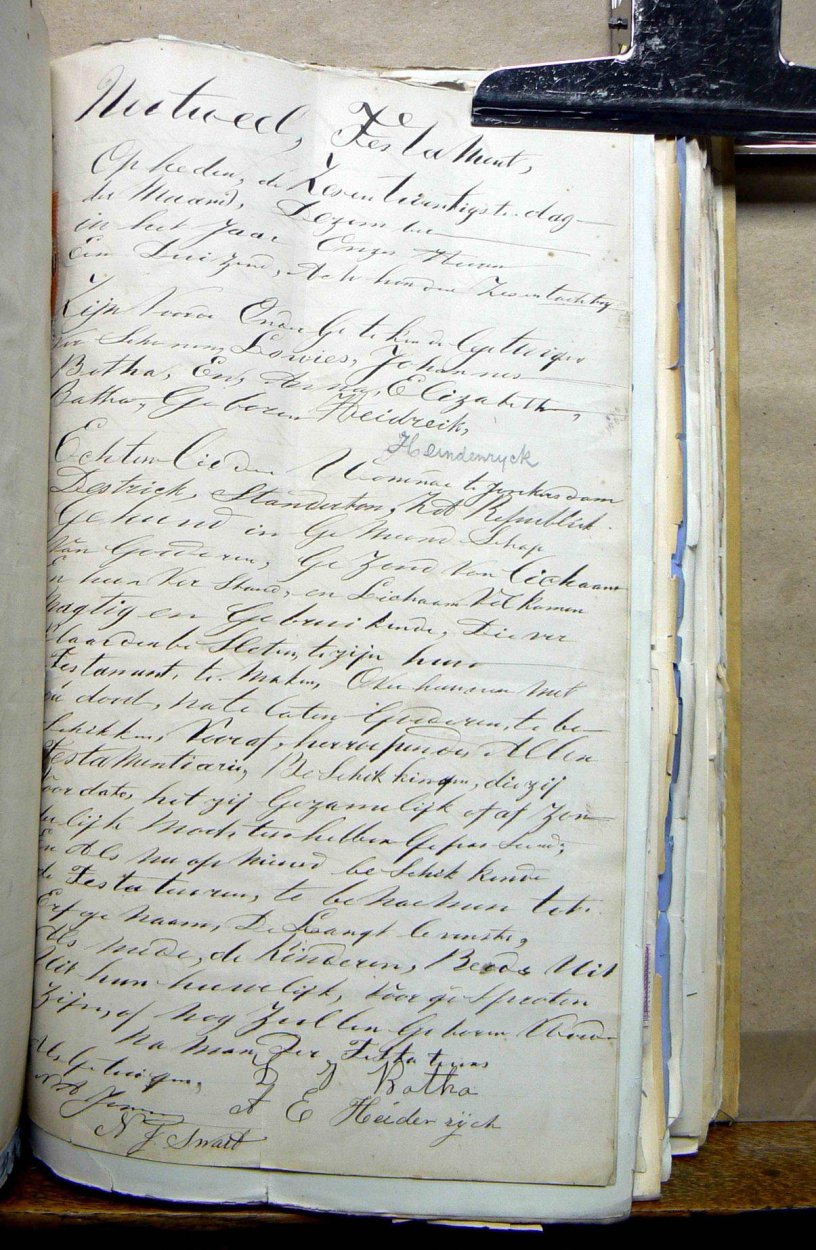 Mutueel, Testament,
Op heden, de Zesentwintigste dag
der Maand, Dezember
in het Jaar Onzes Heeren
Een Duizend, Acht honderd Zesentachtig
Zijn Voor Onder Getekende Getuigen
Ver Schenen, Lowies, Johannes
Botha, En, Anna, Elizabeth,
Botha, Geboren Heidreik,
Heindenryck
Echten Lieden Woonnae te Jonkersdam
Destrick, Standerton, ZA Republiek
Gehuwd in Gemeend Schap
Van Goederen, Gezond Van lichaam
En hun Ver Stand, en Lichaam Vol komen
magtig en Gebruikende, Die ver
klaarden be Sloten te zijn hun
Testament, te maken, Over hunnen met
de dood, nate laten Goederen, te be-
Schikken, Vooraf, herroepende, Allen
Testamentiaire, Be Schikkingen, die zij
Voor dato, het zij Gezamelijk of af Zon-
derlijk mochten hebben Gepas Seerd,
En Als nu op nieuw be Schik kende
de Testateuren, te be noemen tot
Erfge naam, De Langst levenste,
Als mede, de Kinderen, Reeds Uit
Uit hun huwelijk, Voor ge Sproten
Zijn, of Nog Zullen Geboren Worden
Na man, Der, Testateurs
Als Getuigen, Botha
A E Heiderych
N J Swart